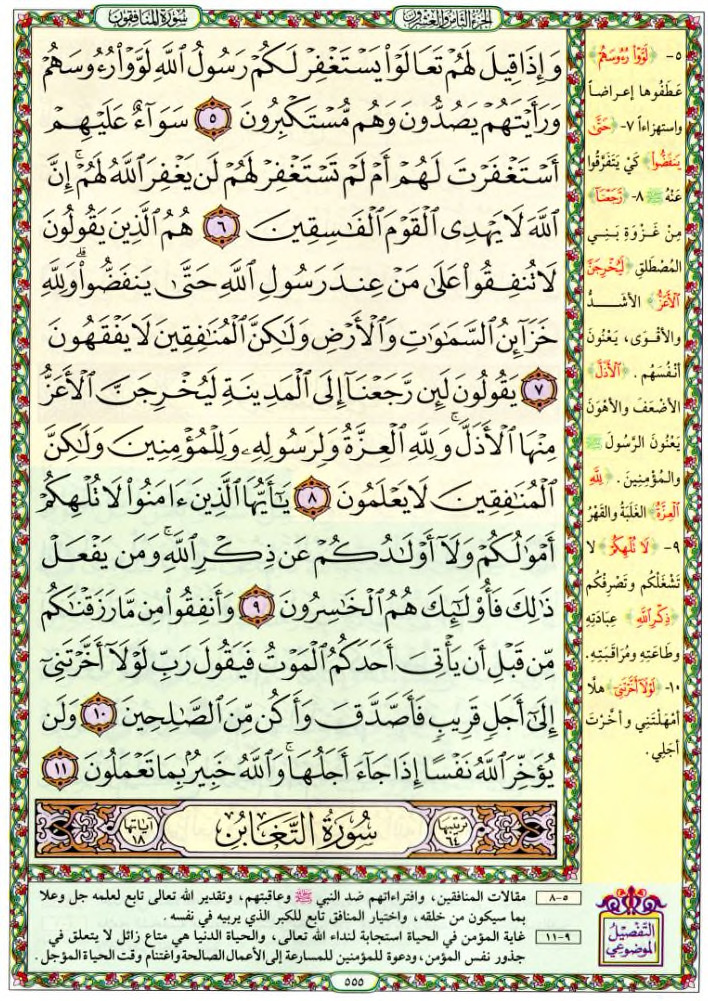 سُورَةُ المُنَافِقُونَ
الجُزْءُ الثَّامِنُ وَالعِشْرُونَ
وَإِذَا قِيلَ لَهُمْ تَعَالَوْا۟ يَسْتَغْفِرْ لَكُمْ رَسُولُ ٱللَّهِ لَوَّوْا۟ رُءُوسَهُمْ
وَرَأَيْتَهُمْ يَصُدُّونَ وَهُم مُّسْتَكْبِرُونَ ٥ سَوَآءٌ عَلَيْهِمْ
أَسْتَغْفَرْتَ لَهُمْ أَمْ لَمْ تَسْتَغْفِرْ لَهُمْ لَن يَغْفِرَ ٱللَّهُ لَهُمْ ۚ إِنَّ
ٱللَّهَ لَا يَهْدِى ٱلْقَوْمَ ٱلْفَـٰسِقِينَ ٦ هُمُ ٱلَّذِينَ يَقُولُونَ
لَا تُنفِقُوا۟ عَلَىٰ مَنْ عِندَ رَسُولِ ٱللَّهِ حَتَّىٰ يَنفَضُّوا۟ ۗ وَلِلَّهِ
خَزَآئِنُ ٱلسَّمَـٰوَٰتِ وَٱلْأَرْضِ وَلَـٰكِنَّ ٱلْمُنَـٰفِقِينَ لَا يَفْقَهُونَ
٧ يَقُولُونَ لَئِن رَّجَعْنَآ إِلَى ٱلْمَدِينَةِ لَيُخْرِجَنَّ ٱلْأَعَزُّ
مِنْهَا ٱلْأَذَلَّ ۚ وَلِلَّهِ ٱلْعِزَّةُ وَلِرَسُولِهِۦ وَلِلْمُؤْمِنِينَ وَلَـٰكِنَّ
ٱلْمُنَـٰفِقِينَ لَا يَعْلَمُونَ ٨ يَـٰٓأَيُّهَا ٱلَّذِينَ ءَامَنُوا۟ لَا تُلْهِكُمْ
أَمْوَٰلُكُمْ وَلَآ أَوْلَـٰدُكُمْ عَن ذِكْرِ ٱللَّهِ ۚ وَمَن يَفْعَلْ
ذَٰلِكَ فَأُو۟لَـٰٓئِكَ هُمُ ٱلْخَـٰسِرُونَ ٩ وَأَنفِقُوا۟ مِن مَّا رَزَقْنَـٰكُم
مِّن قَبْلِ أَن يَأْتِىَ أَحَدَكُمُ ٱلْمَوْتُ فَيَقُولَ رَبِّ لَوْلَآ أَخَّرْتَنِىٓ
إِلَىٰٓ أَجَلٍ قَرِيبٍ فَأَصَّدَّقَ وَأَكُن مِّنَ ٱلصَّـٰلِحِينَ ١٠ وَلَن
يُؤَخِّرَ ٱللَّهُ نَفْسًا إِذَا جَآءَ أَجَلُهَا ۚ وَٱللَّهُ خَبِيرٌۢ بِمَا تَعْمَلُونَ ١١
ترتيبها ٦٤
سُورَةُ التَّغَابُنِ
آياتها ١٨
٥- ﴿لَوَّوْا۟ رُءُوسَهُمْ﴾
عَطَفُوها إعراضاً
واستهزاءاً ٧- ﴿حَتَّىٰ
يَنفَضُّوا۟﴾ كَيْ يَتَفَرَّقُوا
عَنْهُ ﷺ ٨- ﴿رَّجَعْنَآ﴾
مِنْ غَزْوَةِ بَنِي
المُصْطَلِقِ ﴿لَيُخْرِجَنَّ
ٱلْأَعَزُّ﴾ الأشَدُّ
والأقْوَى، يَعْنُونَ
أنْفُسَهُم. ﴿ٱلْأَذَلَّ﴾
الأضْعَفَ والأهْوَنَ
يَعْنُونَ الرَّسُولَ ﷺ
والمُؤْمِنِينَ. ﴿لِلَّهِ
ٱلْعِزَّةُ﴾ الغَلَبَةُ والقَهْرُ
٩- ﴿لَا تُلْهِكُمْ﴾ لا
تَشْغَلْكُم وتَصْرِفْكُم
﴿ذِكْرِ ٱللَّهِ﴾ عِبَادَتِهِ
وطَاعَتِهِ ومُرَاقَبَتِهِ.
١٠- ﴿لَوْلَآ أَخَّرْتَنِىٓ﴾ هلَّا
أمْهَلْتَنِي وأخَّرْتَ
أجَلِي.
التَّفْصِيلُ
المَوْضُوعِي
٥-٨ مقالات المنافقين، وافتراءاتهم ضد النبي ﷺ وعاقبتهم، وتقدير الله تعالى تابع لعلمه جل وعلا
بما سيكون من خلقه، واختيار المنافق تابع للكبر الذي يربيه في نفسه.
٩-١١ غاية المؤمن في الحياة استجابة لنداء الله تعالى، والحياة الدنيا هي متاع زائل لا يتعلق في
جذور نفس المؤمن، ودعوة للمؤمنين للمسارعة إلى الأعمال الصالحة واغتنام وقت الحياة المؤجل.
٥٥٥